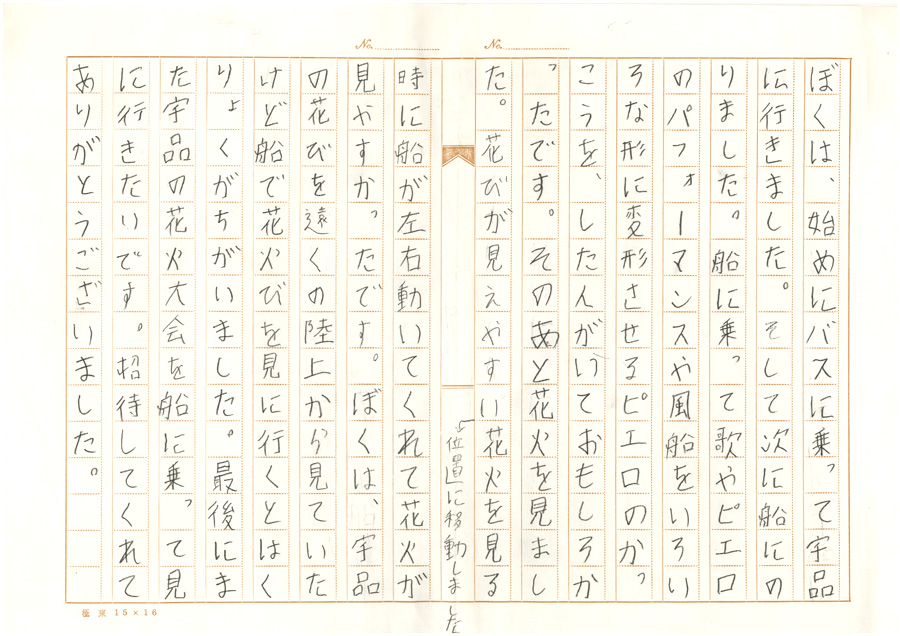 No.
No.
ぼくは、始めにバスに乗って宇品
に行きました。そして次に船にの
りました。船に乗って歌やピエロ
のパフォーマンスや風船をいろい
ろな形に変形させるピエロのかっ
こうを、したんがいておもしろか
ったです。そのあと花火を見まし
た。花びが見えやすい花火を見る
位置に移動しました
時に船が左右動いてくれて花火が
見やすかったです。ぼくは、宇品
の花びを遠くの陸上から見ていた
けど船で花火びを見に行くとはく
りょくがちがいました。最後にま
た宇品の花火大会を船に乗って見
に行きたいです。招待してくれて
ありがとうございました。
15×16